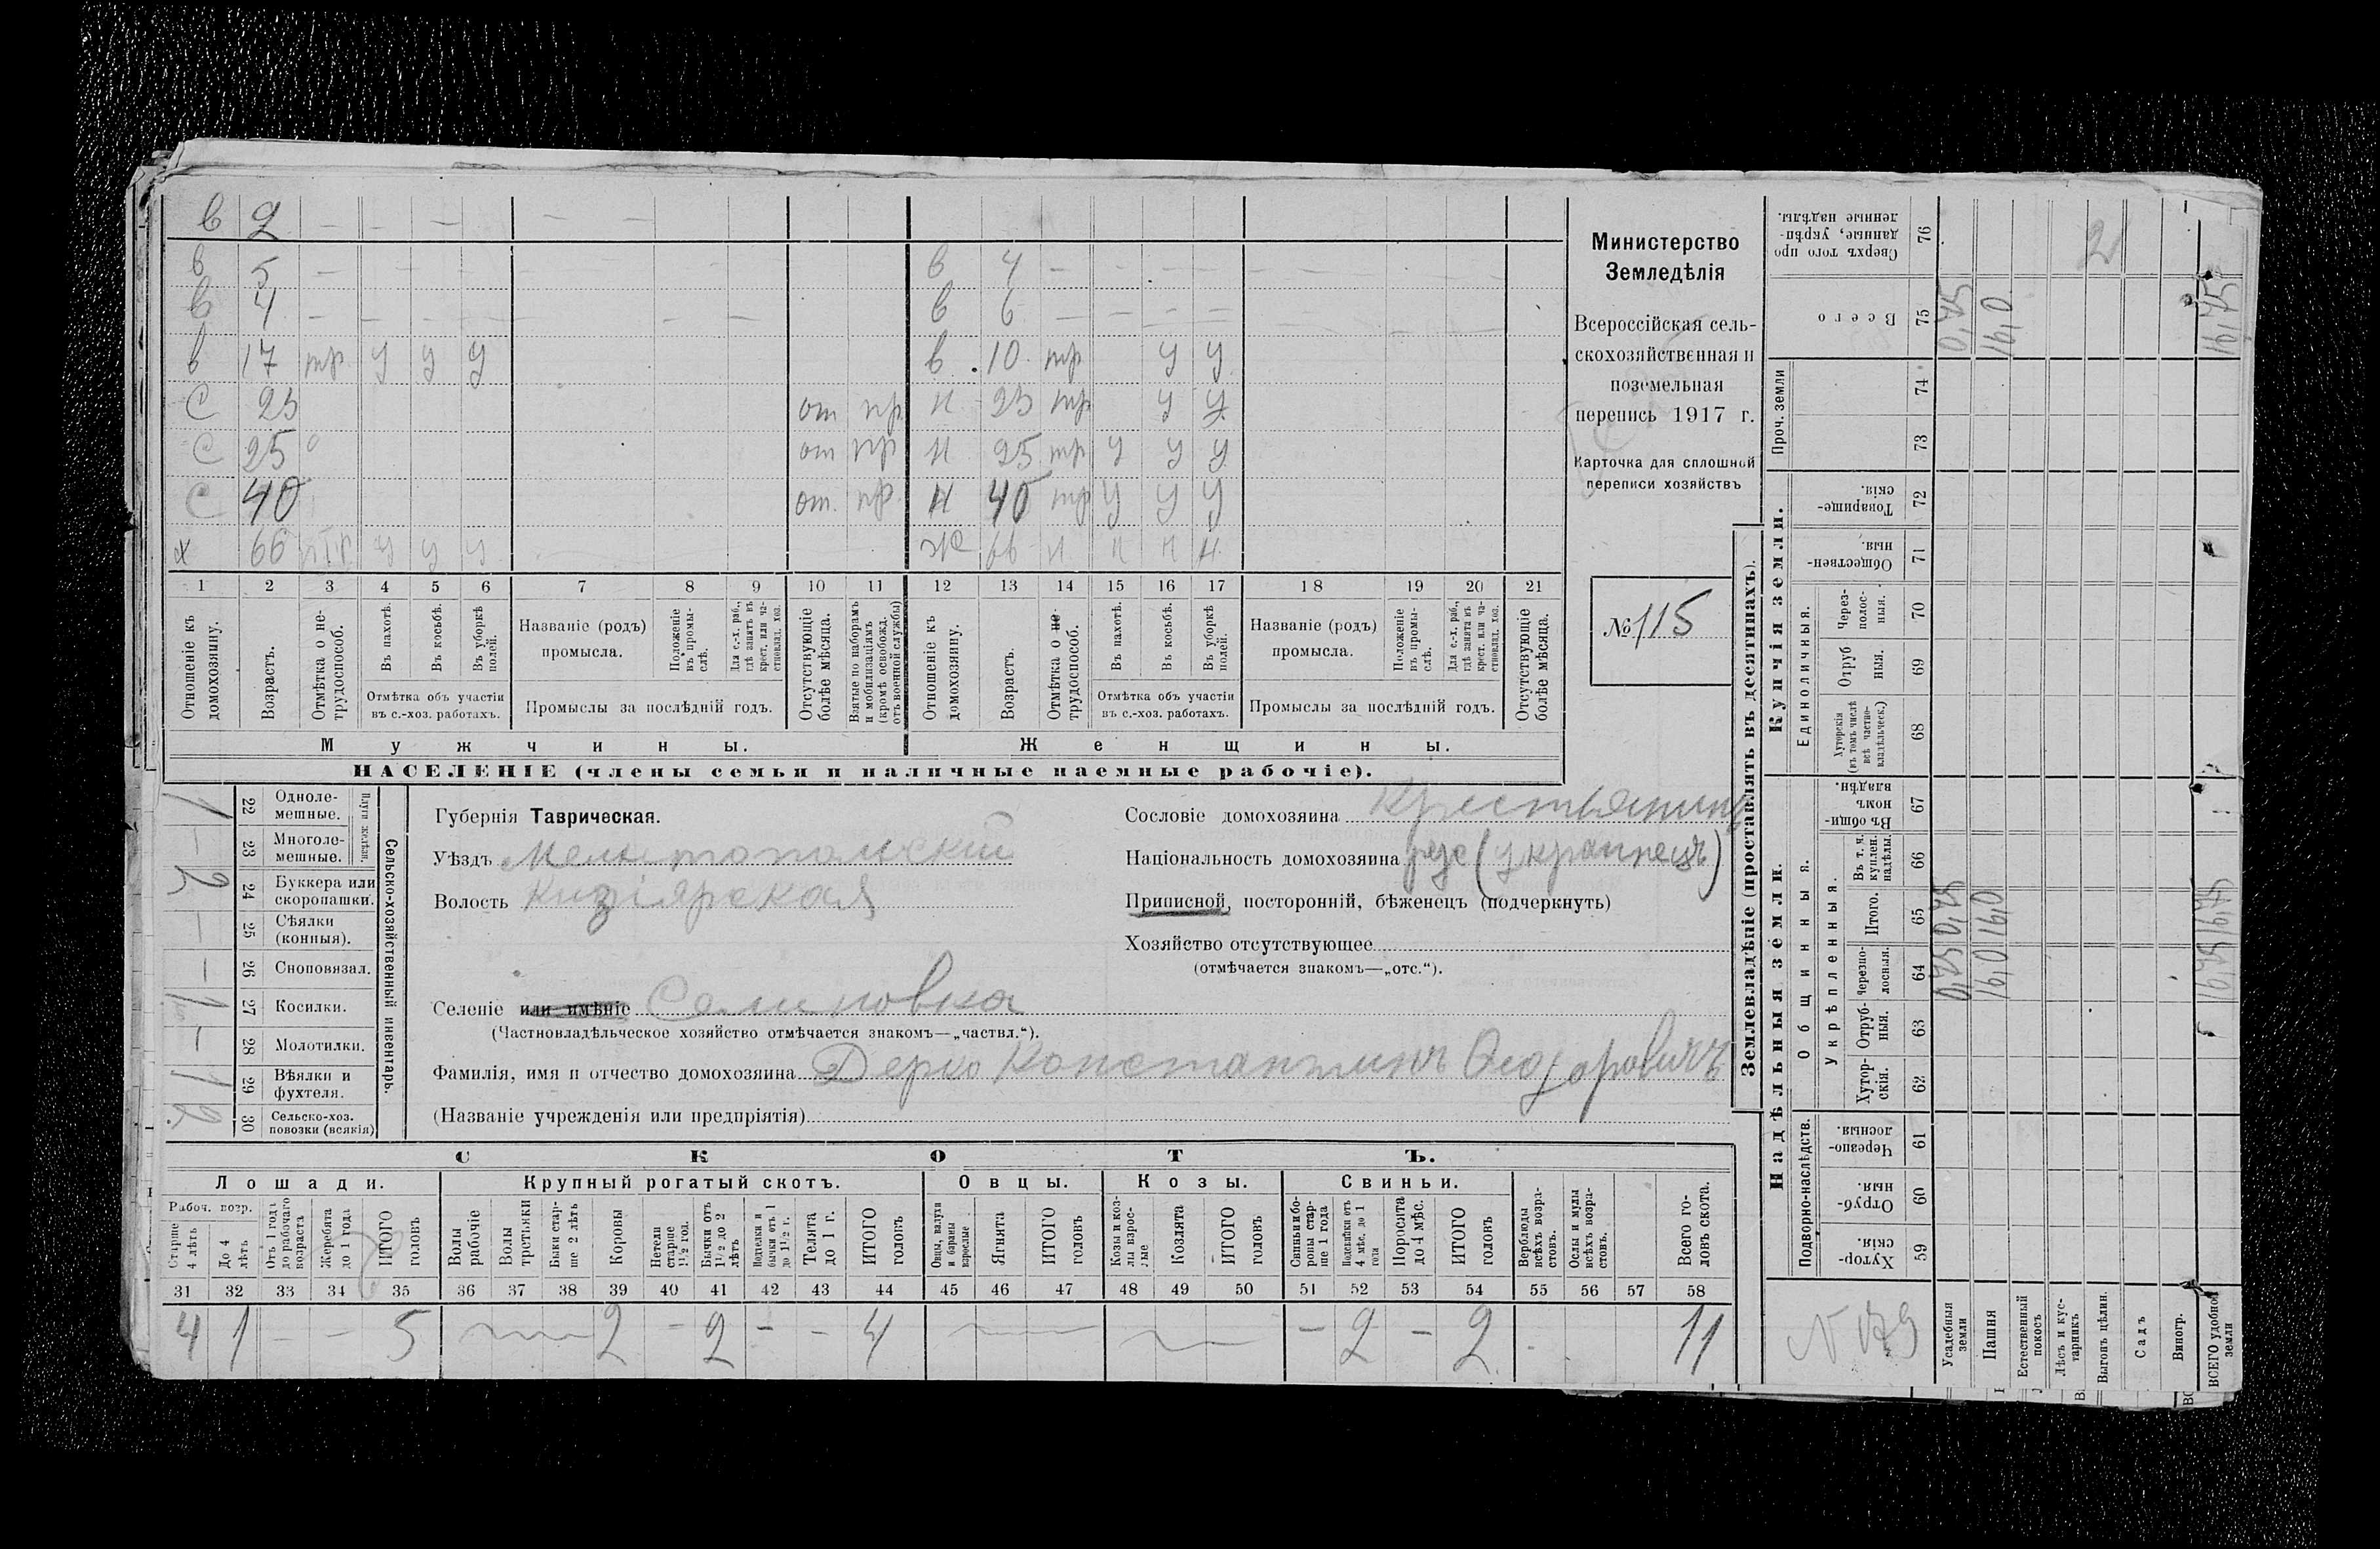 в 2 — — — — —
в 5 — — — — — в 4 — — — — — — —
в 4 — — — — — — — в 6 — — — — — — —
в 17 тр. у у у в 10 тр у у
С 23 от пр. н 23 тр у у
С 25 от пр н 25 тр у у у
С 40 от. пр. н 40 тр у у у
х 66 у у у ж 66 н н н н
1 2 3 4 5 6 7 8 9 10 11 12 13 14 15 16 17 18 19 20 21
Отношеніе къ домохозяину.
Возрастъ.
Отмѣтка о не-трудоспособ.
Въ пахотѣ.
Въ косьбѣ.
Въ уборкѣ полей.
Отмѣтка объ участіи въ с.-хоз. работахъ.
Названіе (родъ) промысла.
Положеніе въ промы-слѣ.
Для с.-х. раб., гдѣ занятъ въ крест. или ча-стновлад. хоз.
Промыслы за послѣдній годъ.
Отсутствующіе болѣе мѣсяца.
Взятые по наборамъ и мобилизаціямъ (кромѣ освобожд. отъ военной службы)
Отношеніе къ домохозяину.
Возрастъ.
Отмѣтка о не-трудоспособ.
Въ пахотѣ.
Въ косьбѣ.
Въ уборкѣ полей.
Отмѣтка объ участіи въ с.-хоз. работахъ.
Названіе (родъ) промысла.
Положеніе въ промы-слѣ.
Для с.-х. раб., гдѣ занята въ крест. или ча-стновлад. хоз.
Промыслы за послѣдній годъ.
Отсутствующіе болѣе мѣсяца.
Мужчины. Женщины.
НАСЕЛЕНІЕ (члены семьи и наличные наемные рабочіе).
Министерство
Земледѣлія
Всероссійская сель-
скохозяйственная и
поземельная
перепись 1917 г.
Карточка для сплошной
переписи хозяйствъ
№ 115
Сельско-хозяйственный инвентарь.
Плуги желѣзн.
1 22 Одноле-мешные.
— 23 Многоле-мешные.
2 24 Буккера или скоропашки.
— 25 Сѣялки (конныя).
— 26 Сноповязал.
1 27 Косилки.
— 28 Молотилки.
1 29 Вѣялки и фухтеля.
2 30 Сельско-хоз. повозки (всякія)
Губернія Таврическая.
Уѣздъ Мелитопольскій
Волость Кизіярская
Селеніе или имѣніе
(Частновладѣльческое хозяйство отмѣчается знакомъ—„частвл.“).
Фамилія, имя и отчество домохозяина Дерко Константинъ Ѳеодоровичъ
(Названіе учрежденія или предпріятія)
Сословіе домохозяина Крестьянинъ
Національность домохозяина рус (украинецъ)
Приписной, посторонній, бѣженецъ (подчеркнуть)
Хозяйство отсутствующее
(отмѣчается знакомъ—„отс.“).
СКОТЪ.
Лошади. Крупный рогатый скотъ. Овцы. Козы. Свиньи.
Рабоч. возр.
Старше 4 лѣтъ
До 4 лѣтъ
Отъ 1 года до рабочаго возраста
Жеребята до 1 года
ИТОГО головъ
Волы рабочіе
Волы третьяки
Быки стар-ше 2 лѣтъ
Коровы
Нетели старше 1½ год.
Бычки отъ 1½ до 2 лѣтъ
Подтелки и бычки отъ 1 до 1½ г.
Телята до 1 г.
ИТОГО головъ
Овцы, валухи и бараны взрослые
Ягнята
ИТОГО головъ
Козы и коз-лы взрос-лые
Козлята
ИТОГО головъ
Свиньи и бо-ровы стар-ше 1 года
Подсвинки отъ 4 мѣс. до 1 года
Поросята до 4 мѣс.
ИТОГО головъ
Верблюды всѣхъ возра-стовъ.
Ослы и мулы всѣхъ возра-стовъ.
Всего го-ловъ скота.
31 32 33 34 35 36 37 38 39 40 41 42 43 44 45 46 47 48 49 50 51 52 53 54 55 56 57 58
4 1 — — 5 2 — 2 — — 4 — 2 — 2 11
Землевладѣніе (проставлять въ десятинахъ).
Купчія земли.
Надѣльныя земли.
Сверхъ того про-данные, укрѣп-ленные надѣлы. 76 2
Всего 75
Проч. земли 74 73
Товарище-скія. 72
Обществен-ныя. 71
Единоличныя.
Через-полос-ныя. 70
Отруб-ныя. 69
Хуторскія (въ томъ числѣ всѣ частно-владѣльческ.) 68
Общинныя.
Въ общи-номъ владѣн. 67
Укрѣпленныя.
Въ т. ч. куплен. надѣлы. 66
Итого. 65
Черезпо-лосныя. 64
Отруб-ныя. 63
Хутор-скія. 62
Подворно-наслѣдств.
Черезпо-лосныя. 61
Отруб-ныя. 60
Хутор-скія. 59
Усадебныя земли
Пашня
Естественный покосъ
Лѣсъ и кус-тарникъ
Выгонъ цѣлин.
Садъ
Виногр.
ВСЕГО удобной земли